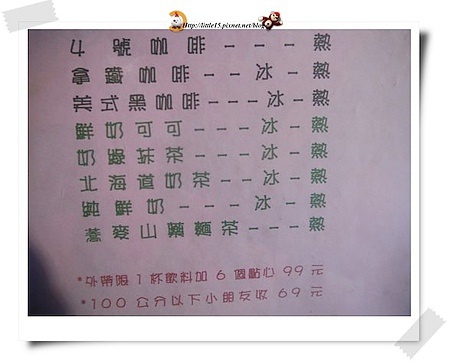 Http://little15.pixnet.net/blog
4號咖啡----熱
拿鐵咖啡--冰-熱
美式黑咖啡---冰-熱
鮮奶可可---冰-熱
奶綠抹茶---冰-熱
北海道奶茶--冰-熱
純鮮奶----冰-熱
蕎麥山藥麵茶---熱
*外帶限1杯飲料加6個點心99元
*100公分以下小朋友收69元